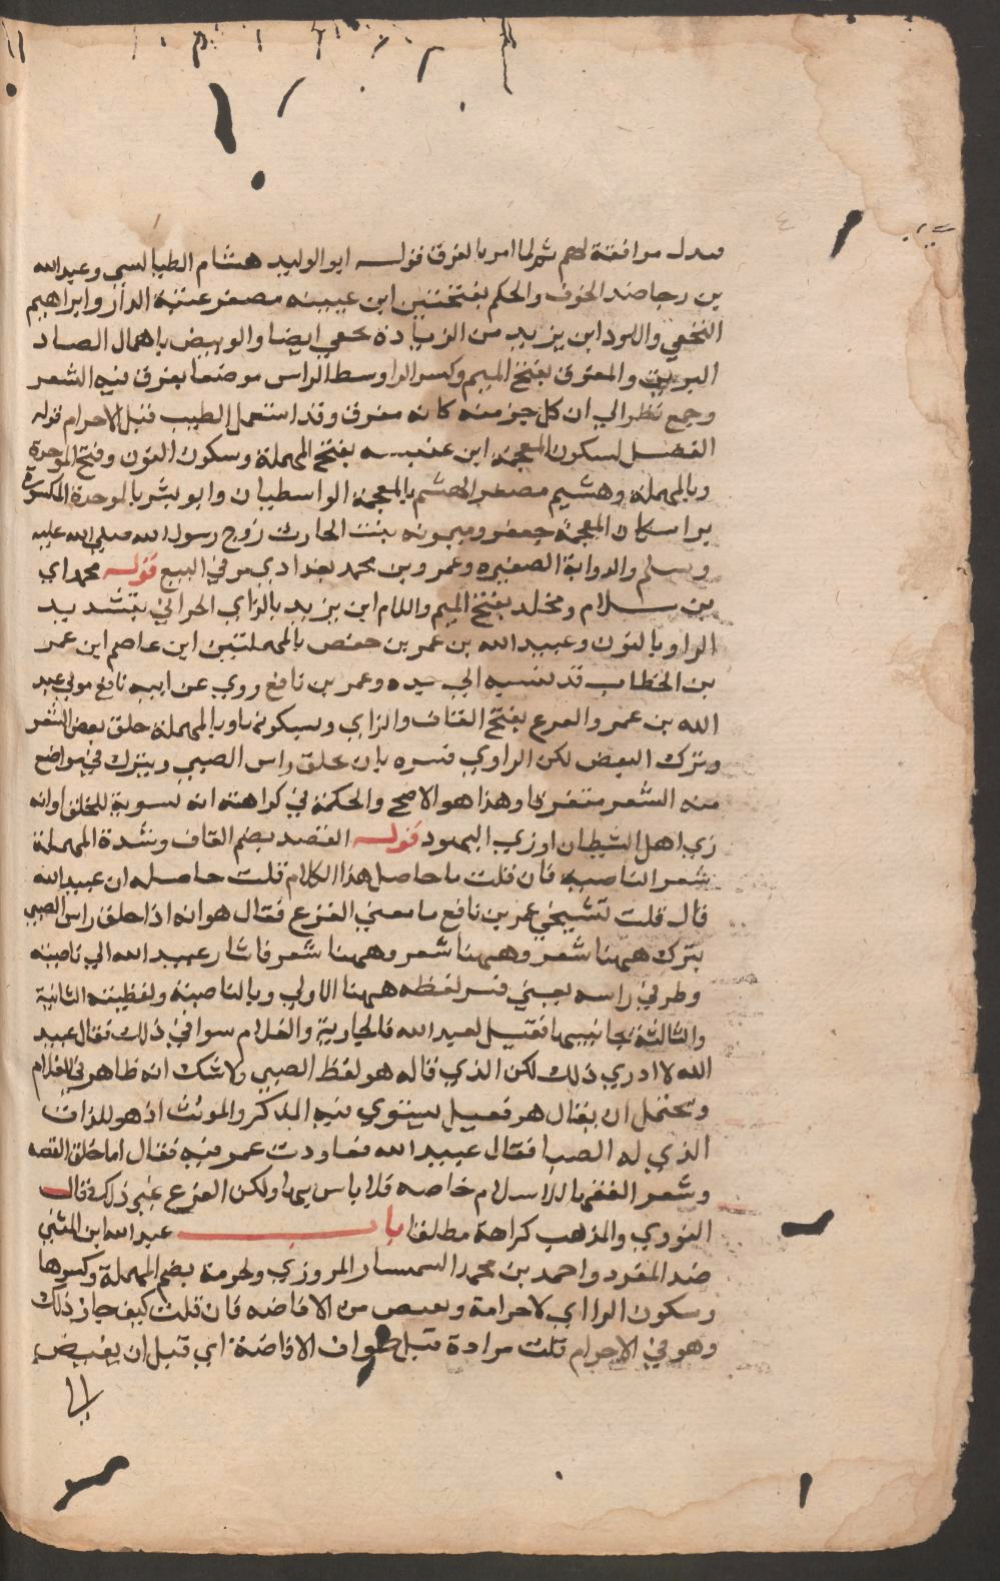 سدل مرافقة لهم ثم لما امر بالفرق قولـه ابو الوليد هشام الطيالسي وعبد الله
بن رجا ضد الخوف والحكم بفتحتين ابن عيينه مصغر عتبة الدار وابراهيم
النخعي والاسود ابن يزيد من الزيادة نخعي ايضا والوبيض باهمال الصاد
البريق والمفرق بفتح الميم وكسر الرا وسط الراس موضعا يفرق فيه الشعر
وجمع نظرا الي ان كل جز منه كانه مفرق وقد استعمل الطيب قبل الاحرام قوله
الفضل لسكون المعجمة ابن عنبسه بفتح المهملة وسكون النون وفتح الموحدة
وبالمهملة وهشيم مصغر الهشم بالمعجمة الواسطيان وابو بشر بالموحدة المكسورة
براسكان المعجمة جعفر وميمونه بنت الحارث زوج رسول الله صلي الله عليه
وسلم والدوابة الصغيره وعمرو بن محمد بغدادي مر في البيع قولـه محمد اي
بن سلام ومخلد بفتح الميم واللام ابن يزيد بالزاي الحراني بتشديد
الرا وبالنون وعبيد الله بن عمر بن حفص بالمهملتين ابن عاصم ابن عمر
بن الخطاب قد نسبه الي جده وعمر بن نافع روي عن ابيه نافع مولي عبد
الله بن عمر والقزع بفتح القاف والزاي وبسكونها وبالمهملة حلق بعض الشعر
وترك البعض لكن الراوي فسره بان يحلق راس الصبي ويترك في مواضع
منه الشعر متفرقا وهذا هو الاصح والحكمة في كراهته انه تسوية للخلق او انه
زي اهل الشيطان او زي اليهود قولـه القصه بضم القاف وشدة المهملة
شعر الناصيه فان قلت ما حاصل هذا الكلام قلت حاصله ان عبيد الله
قال قلت لشيخي عمر بن نافع ما معني القزع فقال هو انه اذا حلق راس الصبي
يترك ههنا شعر وههنا شعر وههنا شعر فاشار عبيد الله الي ناصيته
وطرفي راسه يعني فسر لفظه ههنا الاولي وبالناصية ولفظيته الثانية
والثالثة بجانبيها فقيل لعبد الله فالجارية والغلام سوا في ذلك فقال عبيد
الله لا ادري ذلك لكن الذي قاله هو لفظ الصبي ولا شك انه ظاهر في الغلام
ويحتمل ان يقال هو فعيل يستوي فيه المذكر والمونث اذ هو للذات
الذي له الصبا فقال عبيد الله فعاودت عمر فيه فقال اما حلق القصه
وشعر القفا للاسلام خاصه فلا باس بها ولكن القزع غير ذلك قال
النووي والمذهب كراهة مطلقا باب عبد الله ابن المثني
ضد المفرد واحمد بن محمد السمسار المروزي ولحرمة بضم المهملة وكسرها
وسكون الرا اي لاحرامة ويفيض من الافاضه فان قلت كيف جاز ذلك
وهو في الاحرام قلت مرادة قبل طواف الافاضة اي قبل ان يفيض
الي